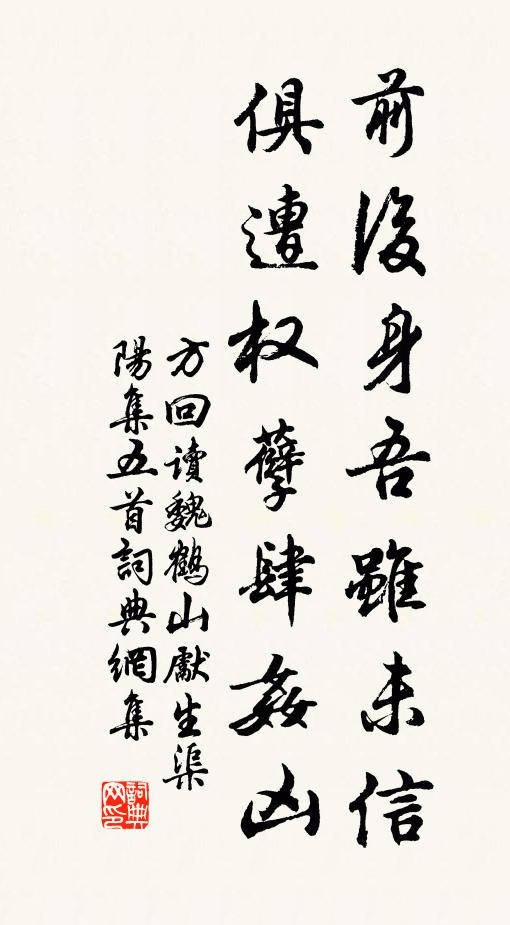 前後身吾雖未信
俱遭权孽肆姦凶
方回讀魏鶴山獻生渠
陽集五首詞典網集
詞典
网印